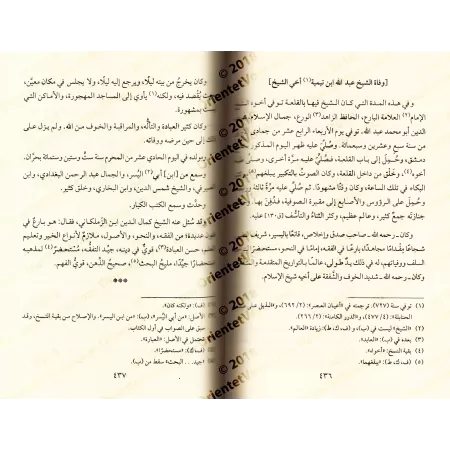 [وفاة الشيخ عبد الله ابن تيمية(١) أخي الشيخ]
وفي هذه المدة التي كان الشيخ فيها بالقلعة توفي أخوه
الإمام(٢) العلامة البارع، الحافظ الزاهد(٣) الورع، جمال الإسلام
الدين أبو محمد عبد الله. توفي يوم الأربعاء الرابع عشر من جمادى
من سنة سبع وعشرين وسبعمائة. وصُلِّي عليه ظهر اليوم المذكور
دمشق، وحُمِل إلى باب القلعة، فصُلِّي عليه مرَّة أخرى، وصلى
أخوه(٤) وخلق من داخل القلعة، وكان الصوت بالتكبير يبلغهم(٥)
البكاء في تلك الساعة، وكان وقتًا مشهودًا. ثم صُلِّي عليه مرَّة ثالثة
وحُمِل على الرؤوس والأصابع إلى مقبرة الصوفية، فدُفِن بها.
جنازته جمعٌ كثير، وعالم عظيم، وكثر الثناءُ والتأسُّف [ق١٣٠] عليه.
وكان ـ رحمه الله ـ صاحب صدق وإخلاص، قانعًا باليسير، شريف
شجاعًا مِقْدامًا، مجاهدًا، بارعًا في الفقه، إمامًا في النحو، مستحضرًا
السلف ووفياتهم، له في ذلك يدٌ طولى، عالمًا بالتواريخ المتقدمة
وكان ـ رحمه الله ـ شديد الخوف والشَّفقة على أخيه شيخ الإسلام.
(١) توفي سنة (٧٢٧). ترجمته في «أعيان العصر»: (٢/ ٦٩٢)، و«الذيل على
الحنابلة»: (٤/ ٤٧٧)، و«الدرر الكامنة»: (٢/ ٢٦٦).
(٢) «الشيخ» ليست في (ب)، و(ف، ك، ط) زيادة: «العالم».
(٣) بعده في (ب): «العابد».
(٤) بقية الشيخ: «أخواه».
(٥) (ف، ك، ط): «يبلغهما».
٤٣٦
وكان يخرجُ من بيته ليلًا، ويرجع إليه ليلًا، ولا يجلس في مكان معيَّن،
يُقصد فيه، ولكنه(١) يأوي إلى المساجد المهجورة، والأماكن التي
ليست بمشهورة.
وكان كثير العبادة والتألُّه والمراقبة والخوف من الله. ولم يزل على
ذلك إلى حين مرضه ووفاته.
ومولده في اليوم الحادي عشر من المحرم سنة ستٍّ وستين وستمائة بحرَّان.
وسمع من [ابن] أبي(٢) اليُسر، والجمال عبد الرحمن البغدادي، وابن
الصيرفي، والشيخ شمس الدين، وابن البخاري، وخلق كثير.
وحدَّث وسمع الكتب الكبار.
وقد سُئل عنه الشيخ كمال الدين ابن الزَّملكاني، فقال: هو بارعٌ في
فنون عديدة؛ من الفقه، والنحو، والأصول، ملازمٌ لأنواع الخير وتعليم
العلم، حسن العبادة(٣)، قويٌّ في دينه، جيِّد التفقُّه، مستحضرٌ(٤) لمذهبه
استحضارًا جيّدًا، مليحُ البحث(٥)، صحيحُ الذِّهن، قويُّ الفهم.
***
(١) (ف): «ولكنه كان».
(٢) الأصل: «من أبي اليسر»، (ب): «من ابن اليسر». والإصلاح من بقية النسخ، وقد
سبق على الصواب في أول الكتاب.
(٣) تحتمل في الأصل: «العبارة».
(٤) (ف، ك): «مستحضرًا».
(٥) «جيد... البحث» سقط من (ب).
٤٣٧